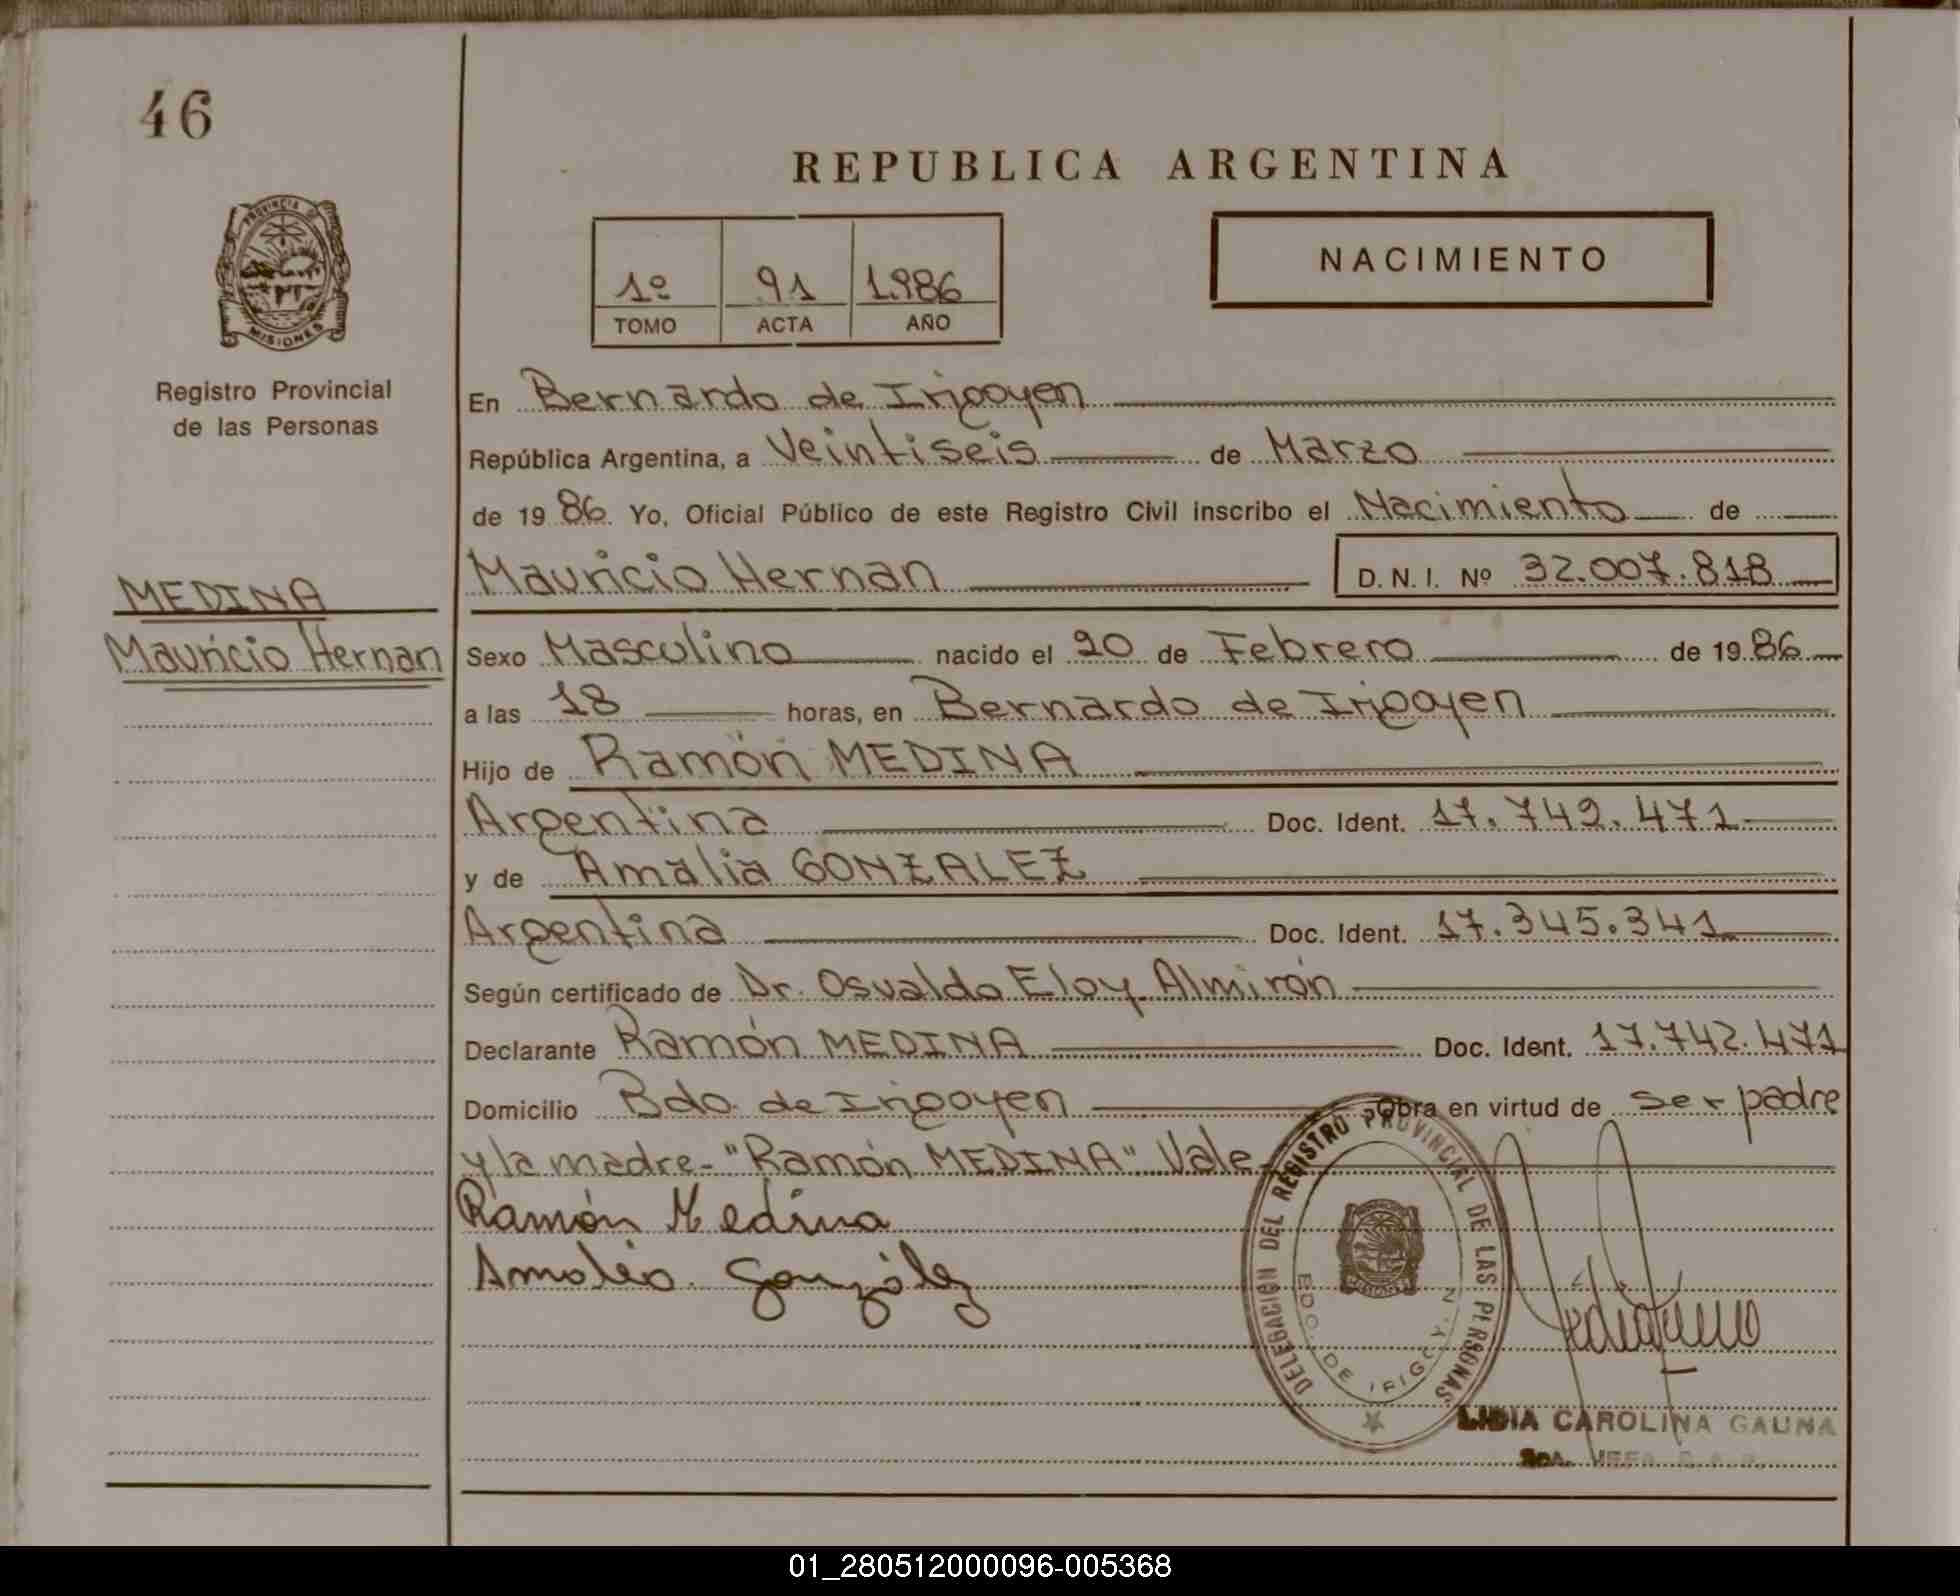 46
REPUBLICA ARGENTINA
PROVINCIA DE
MISIONES
1º 91 1.986
TOMO ACTA AÑO
NACIMIENTO
Registro Provincial
de las Personas
En Bernardo de Irigoyen
República Argentina, a Veintiseis de Marzo
de 19 86. Yo, Oficial Público de este Registro Civil inscribo el Nacimiento de
Mauricio Hernan D. N. I. Nº 32.007.818
MEDINA
Mauricio Hernan
Sexo Masculino nacido el 20 de Febrero de 19 86
a las 18 horas, en Bernardo de Irigoyen
Hijo de Ramón MEDINA
Argentina Doc. Ident. 17.742.471
y de Amalia GONZALEZ
Argentina Doc. Ident. 17.345.341
Según certificado de Dr. Osvaldo Eloy Almirón
Declarante Ramón MEDINA Doc. Ident. 17.742.471
Domicilio Bdo. de Irigoyen Obra en virtud de ser padre
y la madre - "Ramón MEDINA" Vale -
Ramón Medina
Amalia González
DELEGACIÓN DEL REGISTRO PROVINCIAL DE LAS PERSONAS
BDO. DE IRIGOYEN
LIDIA CAROLINA GAUNA
01_280512000096-005368